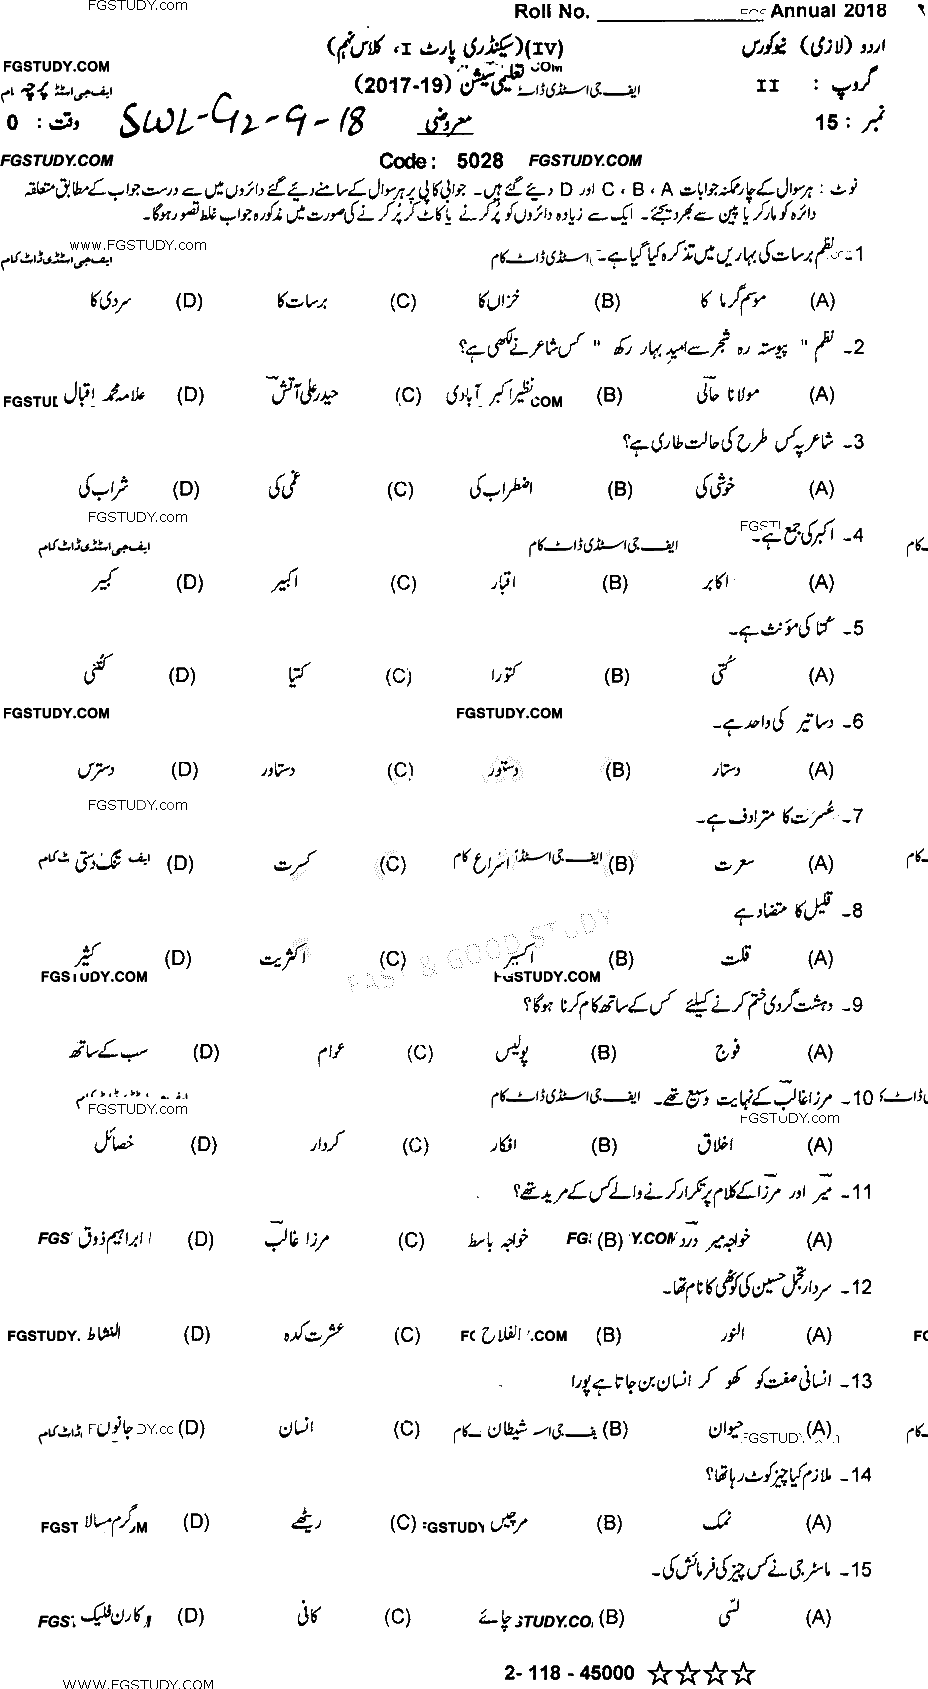 FGSTUDY.COM
Roll No. ____________ Annual 2018
اردو (لازمی) نیوکورس (IV)(سیکنڈری پارٹ I، کلاس نہم)
FGSTUDY.COM
گروپ : II ایف جی اسٹڈی ڈاٹ تعلیمی سیشن (2017-19) ایف جی اسٹڈ پرچہ
نمبر : 15 معروضی SWL-G2-9-18 وقت : 0
FGSTUDY.COM Code : 5028 FGSTUDY.COM
نوٹ : ہر سوال کے چار ممکنہ جوابات A ، B ، C اور D دیئے گئے ہیں۔ جوابی کاپی پر ہر سوال کے سامنے دیئے گئے دائروں میں سے درست جواب کے مطابق متعلقہ
دائرہ کو مارکر یا پین سے بھر دیجئے۔ ایک سے زیادہ دائروں کو پُر کرنے یا کاٹ کر پُر کرنے کی صورت میں مذکورہ جواب غلط تصور ہوگا۔
www.FGSTUDY.COM
1۔ نظم برسات کی بہاریں میں تذکرہ کیا گیا ہے۔ اسٹڈی ڈاٹ کام ایف جی اسٹڈی ڈاٹ کام
(A) موسم گرما کا (B) خزاں کا (C) برسات کا (D) سردی کا
2۔ نظم " پیوستہ رہ شجر سے امید بہار رکھ " کس شاعر نے لکھی ہے؟
(A) مولانا حالی (B) نظیر اکبر آبادی (C) حیدر علی آتش (D) علامہ محمد اقبال
3۔ شاعر پہ کس طرح کی حالت طاری ہے؟
(A) خوشی کی (B) اضطراب کی (C) غمی کی (D) شراب کی
FGSTUDY.com
4۔ اکبر کی جمع ہے۔
ایف جی اسٹڈی ڈاٹ کام ایف جی اسٹڈی ڈاٹ کام
(A) اکابر (B) اقبار (C) اکبیر (D) کبیر
5۔ کتا کی مؤنث ہے۔
(A) کُتی (B) کتورا (C) کتیا (D) کُتنی
FGSTUDY.COM FGSTUDY.COM
6۔ دساتیر کی واحد ہے۔
(A) دستار (B) دستور (C) دستاور (D) دسترس
FGSTUDY.com
7۔ عُسرت کا مترادف ہے۔
(A) سعرت (B) اسراع (C) کسرت (D) تنگ دستی
8۔ قلیل کا متضاد ہے
FAST & GOOD STUDY
(A) قلت (B) اکبیر (C) اکثریت (D) کثیر
FGSTUDY.COM FGSTUDY.COM
9۔ دہشت گردی ختم کرنے کیلئے کس کے ساتھ کام کرنا ہوگا؟
(A) فوج (B) پولیس (C) عوام (D) سب کے ساتھ
10۔ مرزا غالب کے نہایت وسیع تھے۔ ایف جی اسٹڈی ڈاٹ کام
FGSTUDY.com FGSTUDY.com
(A) اخلاق (B) افکار (C) کردار (D) خصائل
11۔ میر اور مرزا کے کلام پر تکرار کرنے والے کس کے مرید تھے؟
(A) خواجہ میر درد (B) خواجہ باسط (C) مرزا غالب (D) ابراہیم ذوق
12۔ سردار تجمل حسین کی کوٹھی کا نام تھا۔
(A) النور (B) الفلاح (C) عشرت کدہ (D) النشاط
13۔ انسانی صفت کو کھو کر انسان بن جاتا ہے پورا
(A) حیوان (B) شیطان (C) انسان (D) جانور
14۔ ملازم کیا چیز کوٹ رہا تھا؟
(A) نمک (B) مرچیں (C) ریٹھے (D) گرم مسالا
15۔ ماسٹر جی نے کس چیز کی فرمائش کی۔
(A) لسّی (B) چائے (C) کافی (D) کارن فلیک
2- 118 - 45000 ☆☆☆☆
WWW.FGSTUDY.COM